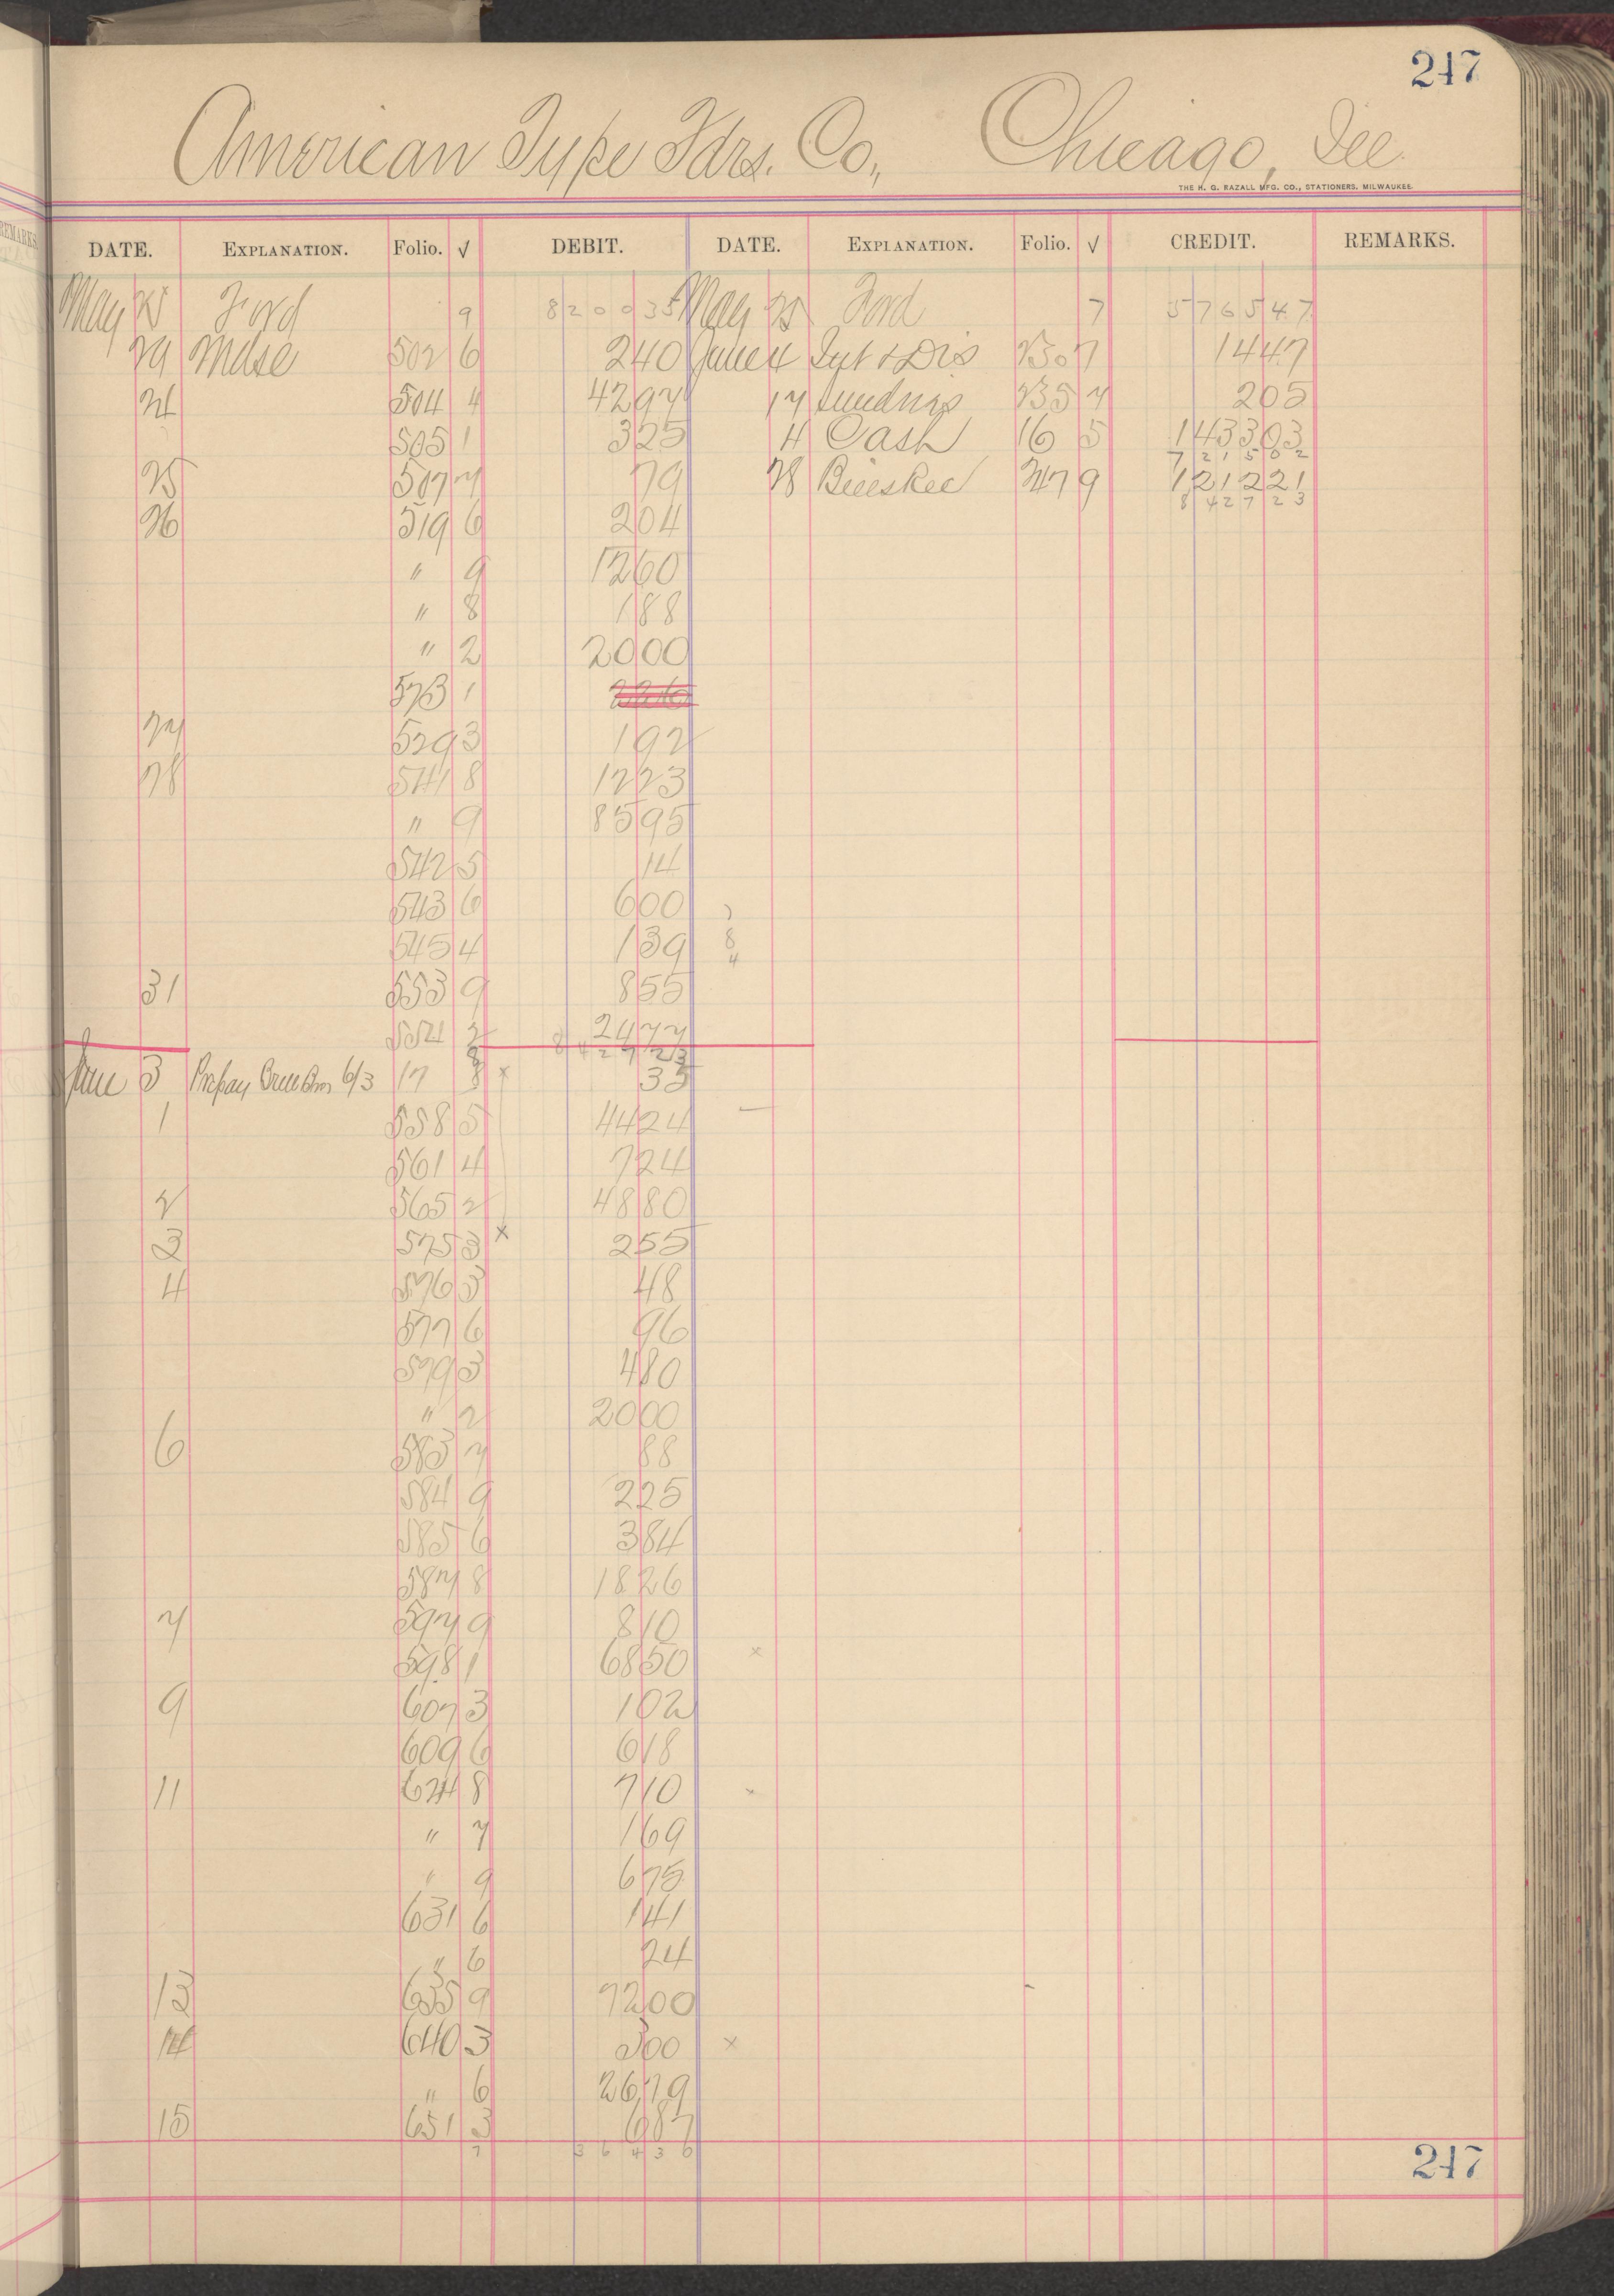 247
American Type Fdrs. Co., Chicago, Ill.
THE H. G. RAZALL MFG. CO., STATIONERS, MILWAUKEE.
DATE. EXPLANATION. Folio. √ DEBIT. DATE. EXPLANATION. Folio. √ CREDIT. REMARKS.
May 25 Ford 9 820035 May 25 Ford 7 576547
Mdse 502 6 240 June 4 Int & Dis 230 7 1447
24 504 4 4297 17 Sundries 235 7 205
505 1 325 Cash 16 5 143303
721502
25 517 7 79 28 247 9 121221
842723
26 519 6 204
" 9 1260
" 8 188
" 2 2000
523 1 226
27 529 3 192
28 541 8 1223
" 9 8595
542 5 14
543 6 600
545 4 139
8
4
31 553 9 855
554 2 2477
842723
June 3 Prepay 6/3 17 8 x 35
1 558 5 4424
561 4 724
2 565 2 4880
3 575 3 x 255
4 576 3 48
577 6 96
579 3 480
" 2 2000
6 583 7 88
584 9 225
585 6 384
587 8 1826
7 597 9 810
598 1 6850 x
9 607 3 102
609 6 618
11 624 8 710
" 7 169
" 9 675
631 6 141
" 6 24
13 635 9 7200
14 640 3 300 x
" 6 2679
15 651 3 687
7 36436
247